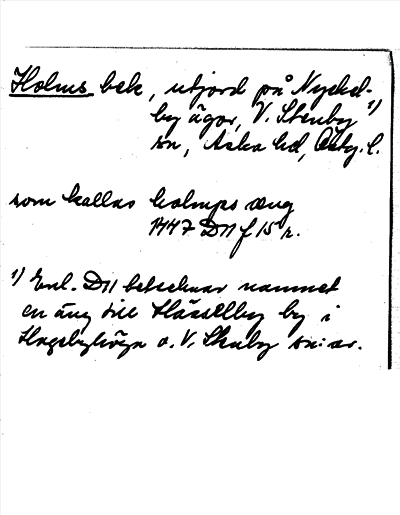 Holms bek, utjord på Nyckel-
by ägor, V. Stenby 1)
sn, Aska hd, Östg. l.
som kallas holmps æng
1447 D11 f 15 r.
1) Enl. D11 betecknar namnet
en äng till Hässelby by i
Hagebyhöga o. V. Stenby sn:ar.